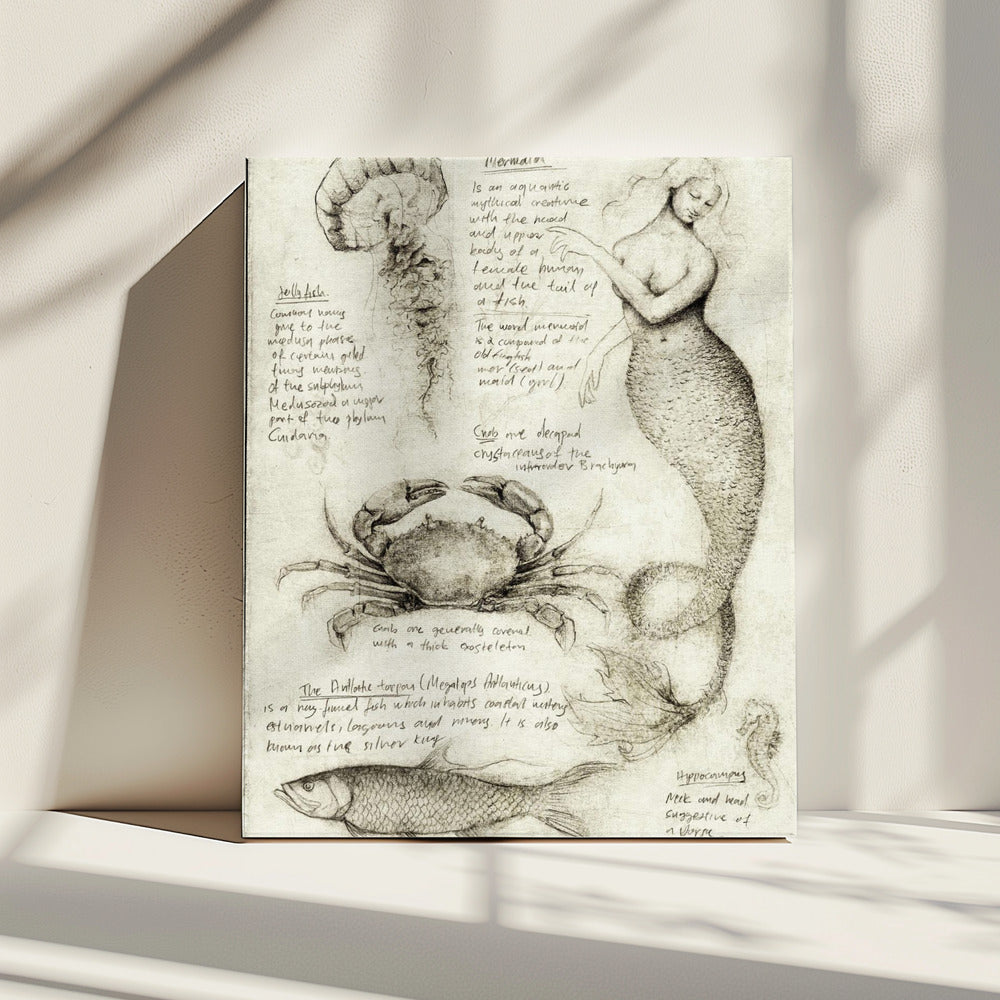 Mermaid
Is an aquantic
mythical creature
with the head
and upper
body of a
female human
and the tail of
a fish.
The word mermaid
is a compound of the
old English
mer (sea) and
maid (girl).
Jelly fish.
Common name
give to the
medusa phase
of certain
of the subphylum
Medusozoa a major
part of the phylum
Cnidaria
Crab are decapod
crystaceans of the
infraorder Brachyura
Crab are generally covered
with a thick exosteleton
The Atlantic tarpon (Megalops Atlanticus)
is a ray-finned fish which inhabits coastal waters
estuaries, lagoons and rivers. It is also
known as the silver king
Hippocampus
Neck and head
suggestive of
a horse